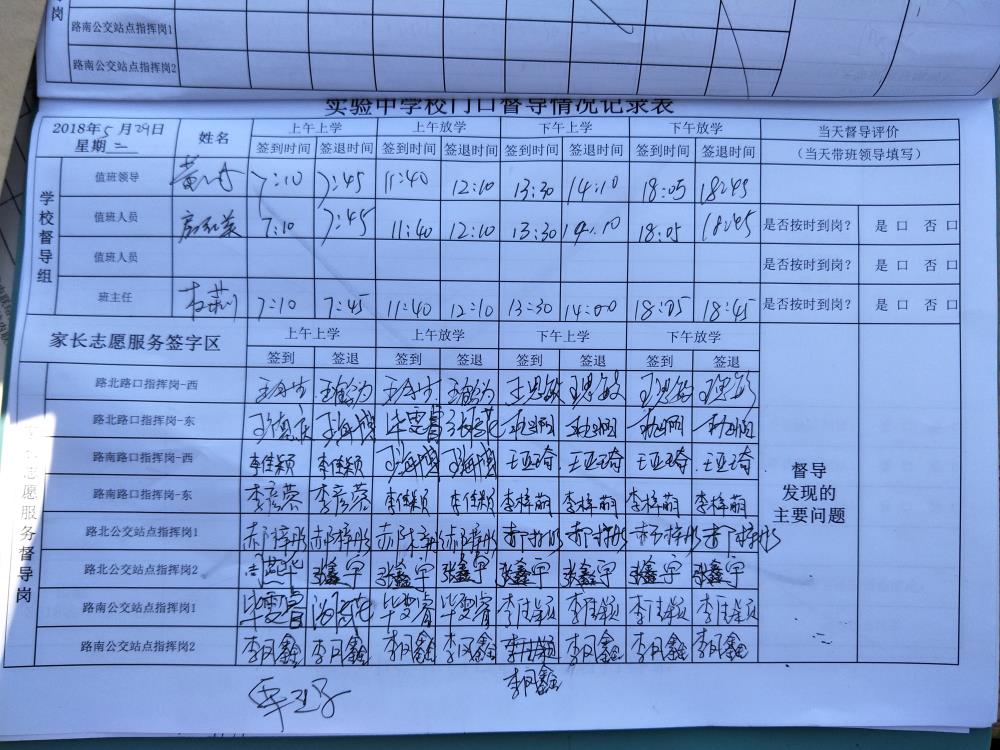 岗
路南公交站点指挥岗1
路南公交站点指挥岗2
实验中学校门口督导情况记录表
2018年5月29日 姓名 上午上学 上午放学 下午上学 下午放学 当天督导评价
星期二 签到时间 签退时间 签到时间 签退时间 签到时间 签退时间 签到时间 签退时间 （当天带班领导填写）
学校督导组
值班领导 7:10 7:45 11:40 12:10 13:30 14:10 18:05 18:45
值班人员 7:10 7:45 11:40 12:10 13:30 14:10 18:05 18:45 是否按时到岗？ 是 口 否 口
值班人员 是否按时到岗？ 是 口 否 口
班主任 7:10 7:45 11:40 12:10 13:30 14:00 18:05 18:45 是否按时到岗？ 是 口 否 口
家长志愿服务签字区 上午上学 上午放学 下午上学 下午放学
签到 签退 签到 签退 签到 签退 签到 签退
愿服务督导岗
路北路口指挥岗-西 王思敏 王思敏 王思敏 王思敏
路北路口指挥岗-东 毕雯睿
路南路口指挥岗-西 李佳颖 李佳颖 王亚琦 王亚琦 王亚琦 王亚琦
路南路口指挥岗-东 李彦蓉 李彦蓉 李佳颖 李佳颖 李梓萌 李梓萌 李梓萌 李梓萌
路北公交站点指挥岗1 郝梓彤 郝梓彤 郝梓彤 郝梓彤 郝梓彤 郝梓彤 郝梓彤 郝梓彤
路北公交站点指挥岗2 张鑫宇 张鑫宇 张鑫宇 张鑫宇 张鑫宇 张鑫宇 张鑫宇
路南公交站点指挥岗1 毕雯睿 毕雯睿 毕雯睿 李佳颖 李佳颖 李佳颖 李佳颖
路南公交站点指挥岗2 李风鑫 李风鑫 李风鑫 李风鑫 李风鑫 李风鑫 李风鑫
李风鑫
督导
发现的
主要问题